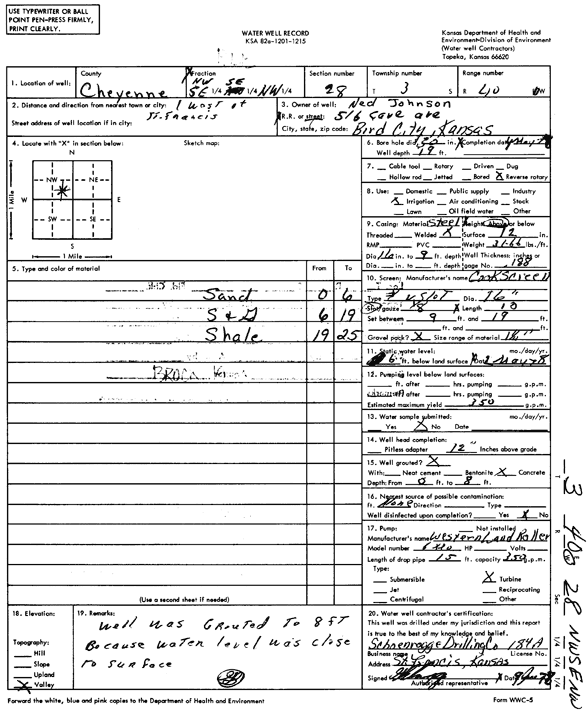 USE TYPEWRITER OR BALL
POINT PEN-PRESS FIRMLY,
PRINT CLEARLY.
WATER WELL RECORD
KSA 82a-1201-1215
Kansas Department of Health and
Environment-Division of Environment
(Water well Contractors)
Topeka, Kansas 66620
1. Location of well: County Cheyenne Fraction NW SE SE 1/4 1/4 NW 1/4 Section number 28 Township number T 3 S Range number R 40 W
2. Distance and direction from nearest town or city: 1 west of St. Francis
Street address of well location if in city:
3. Owner of well: Ned Johnson
R.R. or street: 516 Cave ave
City, state, zip code: Bird City, Kansas
4. Locate with "X" in section below: Sketch map:
N
NW NE
W E
SW SE
S
1 Mile
1 Mile
6. Bore hole dia. 30 in. Completion date
Well depth 19 ft.
7. Cable tool Rotary Driven Dug
Hollow rod Jetted Bored X Reverse rotary
8. Use: Domestic Public supply Industry
X Irrigation Air conditioning Stock
Lawn Oil field water Other
9. Casing: Material Steel Height: Above or below
Threaded Welded X Surface 12 in.
RMP PVC Weight 31.66 lbs./ft.
Dia. 16 in. to 9 ft. depth Wall Thickness: inches or
Dia. in. to ft. depth gage No. .188
5. Type and color of material From To
Sand 0 6
S & G 6 19
Shale 19 25
(Use a second sheet if needed)
10. Screen: Manufacturer's name Cook Screen
Type V slot Dia. 16"
Slot/gauze 8 X Length 10
Set between 9 ft. and 19 ft.
ft. and ft.
Gravel pack? X Size range of material
11. Static water level: mo./day/yr.
6 ft. below land surface Date 2 May 78
12. Pumping level below land surfaces:
ft. after hrs. pumping g.p.m.
ft. after hrs. pumping g.p.m.
Estimated maximum yield 350 g.p.m.
13. Water sample submitted: mo./day/yr.
Yes X No Date
14. Well head completion:
Pitless adapter 12" Inches above grade
15. Well grouted? X
With: Neat cement Bentonite X Concrete
Depth: From 0 ft. to 8 ft.
16. Nearest source of possible contamination:
ft. None Direction Type
Well disinfected upon completion? Yes X No
17. Pump: Not installed
Manufacturer's name Western Land Roller
Model number HP Volts
Length of drop pipe 15 ft. capacity 350 g.p.m.
Type:
Submersible X Turbine
Jet Reciprocating
Centrifugal Other
18. Elevation:
Topography:
Hill
Slope
Upland
X Valley
19. Remarks:
Well was Grouted To 8 FT
Because water level was close
To surface
20. Water well contractor's certification:
This well was drilled under my jurisdiction and this report
is true to the best of my knowledge and belief.
Schoenrogge Drilling Co 184A
Business name License No.
Address St. Francis, Kansas
Signed Date
Authorized representative
Forward the white, blue and pink copies to the Department of Health and Environment
Form WWC-5
T 3 R 40 W Sec 28 NWSENW
1/4 1/4 1/4